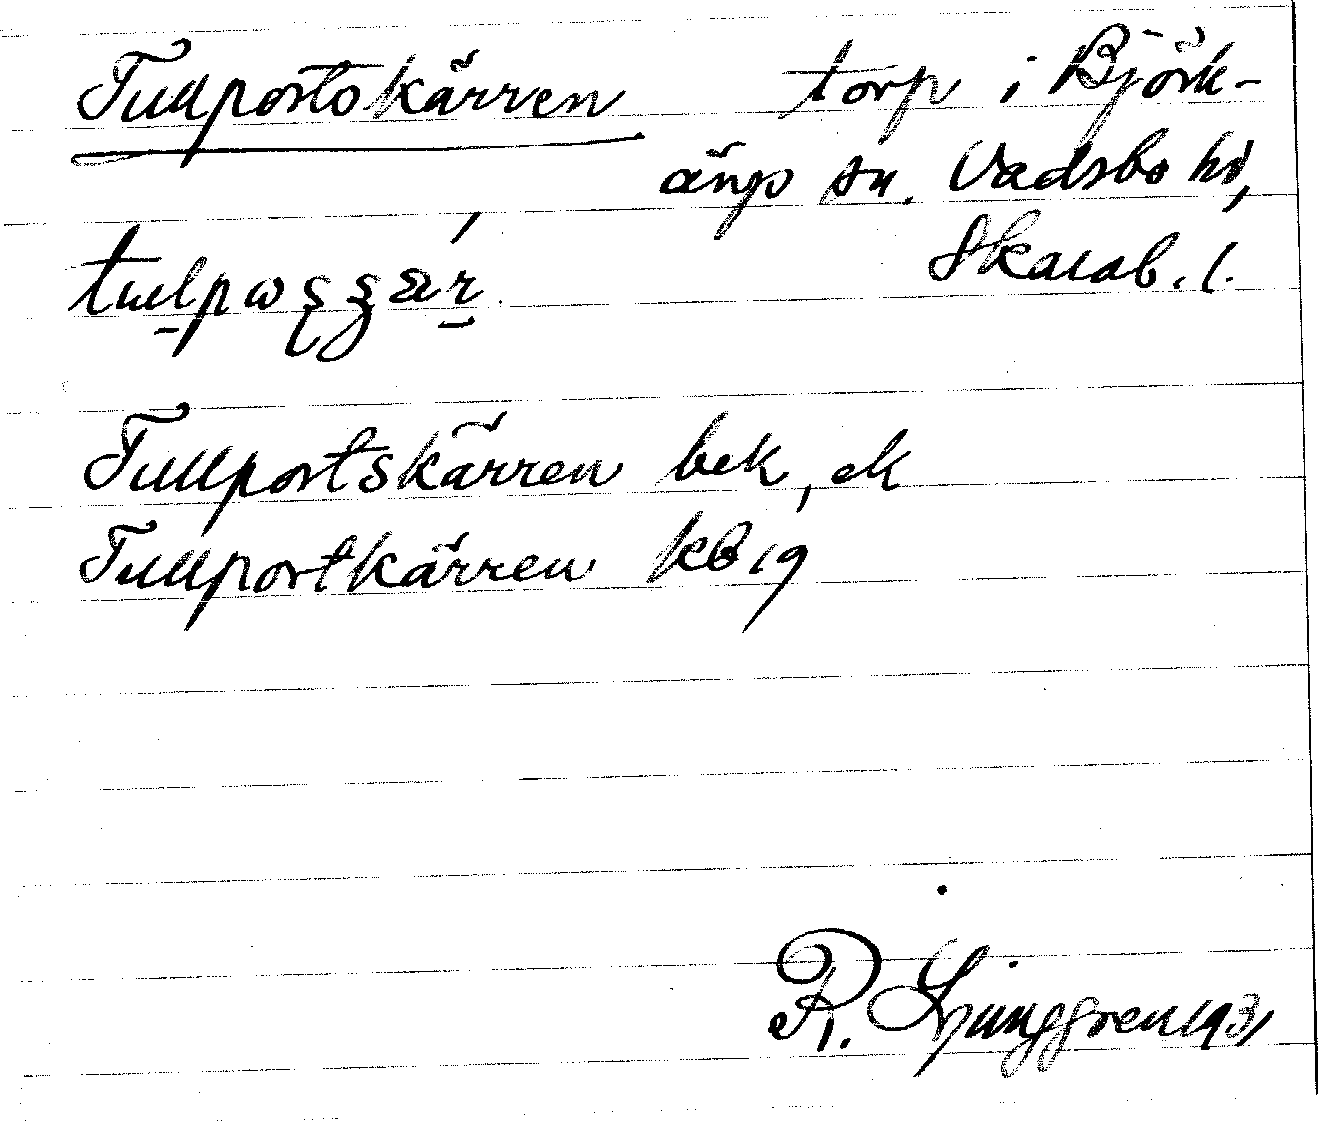 Tullportskärren torp i Björk-
ängs sn. Vadsbo hd,
Skarab. l.
Tullportskärren bek, ek
Tullportkärren kb 19
R. Ljunggren 1931